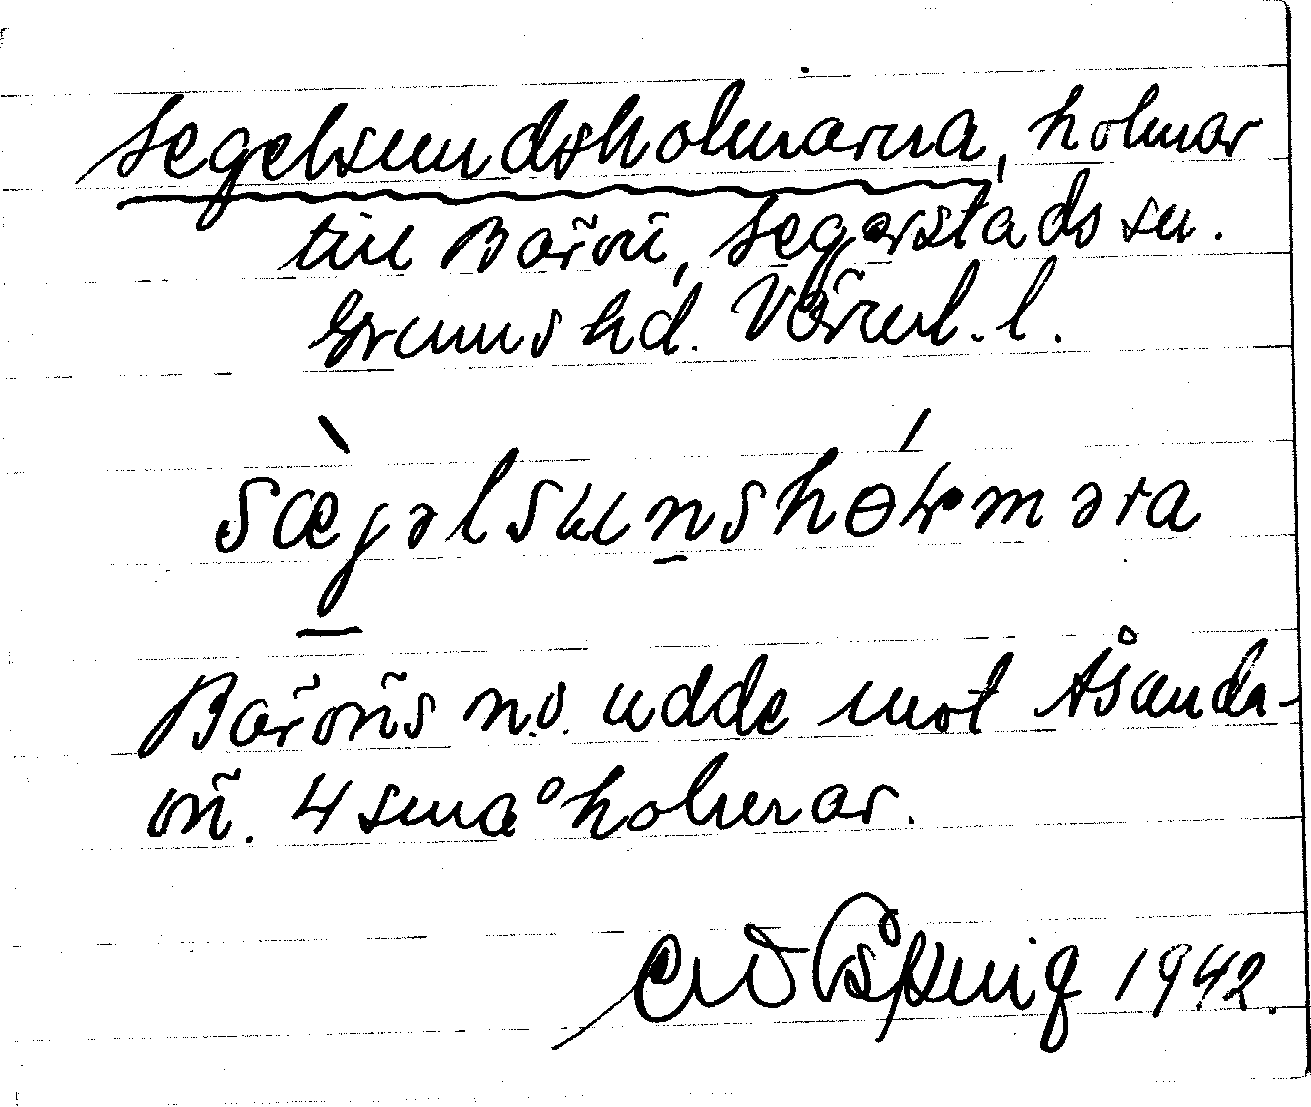 Segelsundsholmarna, holmar
till Barön, Segerstads sn.
Grums hd. Värml. l.
sæɡəlsunshɵɽməra
Baröns n.v. udde mot Åsunda-
ön. 4 små holmar.
1942.